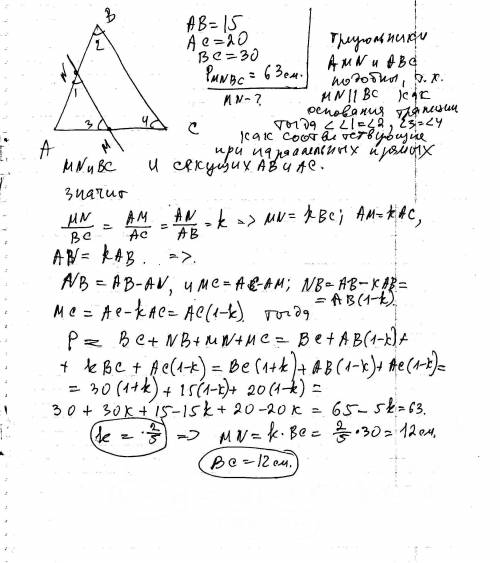 B
2
N
1
3
4
A
M
C
AB = 15
AC = 20
BC = 30
P MNBC = 63 см.
MN - ?
треугольники
AMN и ABC
подобны, т.к.
MN || BC как
основания трапеции
тогда < <1=<2, <3=<4
как соответствующие
при параллельных прямых
MN и BC и секущих AB и AC.
значит
MN/BC = AM/AC = AN/AB = k => MN = kBC; AM = kAC,
AN = kAB. =>.
NB = AB-AN, и MC = AC-AM; NB = AB-kAB=
= AB(1-k)
MC = AC-kAC = AC(1-k). тогда
P = BC + NB + MN + MC = BC + AB(1-k)+
+ kBC + AC(1-k) = BC(1+k) + AB(1-k) + AC(1-k) =
= 30(1+k) + 15(1-k) + 20(1-k) =
30 + 30k + 15 - 15k + 20 - 20k = 65 - 5k = 63.
k = 2/5 => MN = k·BC = 2/5 · 30 = 12 см.
BC = 12 см.